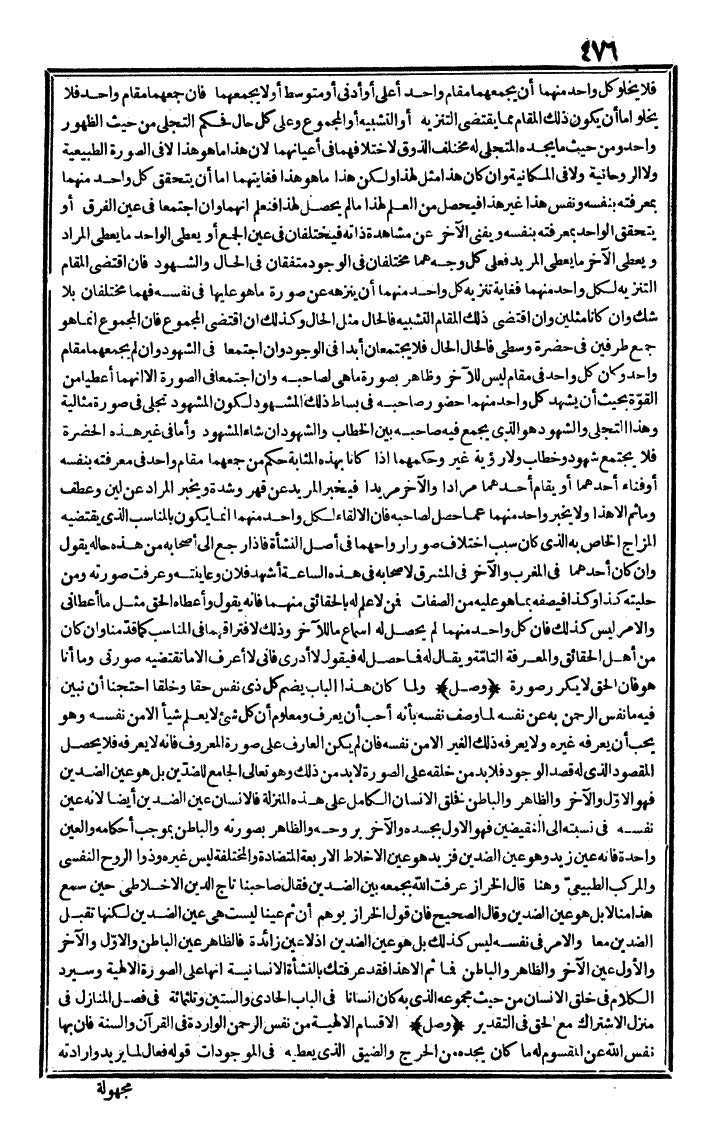 ٤٧٦
فلا يخلو كل واحد منهما أن يجمعهما مقام واحد أعلى أو أدنى أو متوسط أو لا يجمعهما فان جمعهما مقام واحد فلا
يخلو اما أن يكون ذلك المقام مما يقتضى التنزيه أو التشبيه أو المجموع وعلى كل حال فحكم التجلى من حيث الظهور
واحد ومن حيث ما يجده المتجلى له مختلف الذوق لاختلافهما فى أعيانهما لان هذا ما هو هذا لا فى الصورة الطبيعية
ولا الروحانية ولا فى المكانية وان كان هذا مثل لهذا ولكن هذا ما هو هذا فغايتهما اما أن يتحقق كل واحد منهما
بمعرفته بنفسه ونفس هذا غير هذا فيحصل من العلم لهذا ما لم يحصل لهذا فنعلم انهما وان اجتمعا فى عين الفرق أو
يتحقق الواحد بمعرفته بنفسه ويفنى الآخر عن مشاهدة ذاته فيختلفان فى عين الجمع أو يعطى الواحد ما يعطى المراد
ويعطى الآخر ما يعطى المريد فعلى كل وجه هما مختلفان فى الوجود متفقان فى الحال والشهود فان اقتضى المقام
التنزيه لكل واحد منهما فغاية تنزيه كل واحد منهما أن ينزهه عن صورة ما هو عليها فى نفسه فهما مختلفان بلا
شك وان كانا مثلين وان اقتضى ذلك المقام التشبيه فالحال مثل الحال وكذلك ان اقتضى المجموع فان المجموع انما هو
جمع طرفين فى حضرة وسطى فالحال الحال فلا يجتمعان أبدا فى الوجود وان اجتمعا فى الشهود وان لم يجمعهما مقام
واحد وكان كل واحد فى مقام ليس للآخر وظاهر بصورة ما هى لصاحبه وان اجتمعا فى الصورة الا انهما أعطيا من
القوة بحيث أن يشهد كل واحد منهما حضور صاحبه فى بساط ذلك المشهود لكون المشهود تجلى فى صورة مثالية
وهذا التجلى والشهود هو الذى يجمع فيه صاحبه بين الخطاب والشهود ان شاء المشهود وأما فى غير هذه الحضرة
فلا يجتمع شهود وخطاب ولا رؤية غير وحكمهما اذا كانا بهذه المثابة حكم من جمعهما مقام واحد فى معرفته بنفسه
أو فناء أحدهما أو يقام أحدهما مرادا والآخر مريدا فيخبر المريد عن قهر وشدة ويخبر المراد عن لين وعطف
وما ثم الا هذا ولا يخبر واحد منهما عما حصل لصاحبه فان الالقاء لكل واحد منهما انما يكون بالمناسب الذى يقتضيه
المزاج الخاص به الذى كان سبب اختلاف صور ارواحهما فى أصل النشأة فاذا رجع الى أصحابه من هذه حاله يقول
وان كان أحدهما فى المغرب والآخر فى المشرق لاصحابه فى هذه الساعة أشهد فلان وعاينته وعرفت صورته ومن
حليته كذا وكذا فيصفه بما هو عليه من الصفات فمن لا علم له بالحقائق منهما فانه يقول وأعطاه الحق مثل ما أعطانى
والامر ليس كذلك فان كل واحد منهما لم يحصل له اسماع ما للآخر وذلك لافتراقهما فى المناسب كما قدّمنا وان كان
من أهل الحقائق والمعرفة التامّة ويقال له فما حصل له فيقول لا أدرى فانى لا أعرف الا ما تقتضيه صورتى وما أنا
هو فان الحق لا يكرر صورة ﴿وصل﴾ ولما كان هذا الباب يضم كل ذى نفس حقا وخلقا احتجنا أن نبين
فيه ما نفس الرحمن به عن نفسه لما وصف نفسه بأنه أحب أن يعرف ومعلوم أن كل شئ لا يعلم شيأ الا من نفسه وهو
يحب أن يعرفه غيره ولا يعرفه ذلك الغير الا من نفسه فان لم يكن العارف على صورة المعروف فانه لا يعرفه فلا يحصل
المقصود الذى له قصد الوجود فلا بد من خلقه على الصورة لا بد من ذلك وهو تعالى الجامع للضدّين بل هو عين الضدين
فهو الاوّل والآخر والظاهر والباطن فخلق الانسان الكامل على هذه المنزلة فالانسان عين الضدين أيضا لانه عين
نفسه فى نسبته الى النقيضين فهو الاول بجسده والآخر بروحه والظاهر بصورته والباطن بموجب أحكامه والعين
واحدة فانه عين زيد وهو عين الضدين فزيد هو عين الاخلاط الاربعة المتضادة والمختلفة ليس غيره وذوا الروح النفسى
والمركب الطبيعىّ وهنا قال الخراز عرفت الله بجمعه بين الضدين فقال صاحبنا تاج الدين الاخلاطى حين سمع
هذا منا لا بل هو عين الضدين وقال الصحيح فان قول الخراز يوهم أن ثم عينا ليست هى عين الضدين لكنها تقبل
الضدين معا والامر فى نفسه ليس كذلك بل هو عين الضدين اذ لا عين زائدة فالظاهر عين الباطن والاوّل والآخر
والأول عين الآخر والظاهر والباطن فما ثم الا هذا فقد عرفتك بالنشأة الانسانية انها على الصورة الالهية وسيرد
الكلام فى خلق الانسان من حيث مجموعه الذى به كان انسانا فى الباب الحادى والستين وثلثمائة فى فصل المنازل فى
منزل الاشتراك مع الحق فى التقدير ﴿وصل﴾ الاقسام الالهية من نفس الرحمن الواردة فى القرآن والسنة فان بها
نفس الله عن المقسوم له ما كان يجده من الحرج والضيق الذى يعطيه فى الموجودات قوله فعال لما يريد وارادته
مجهولة